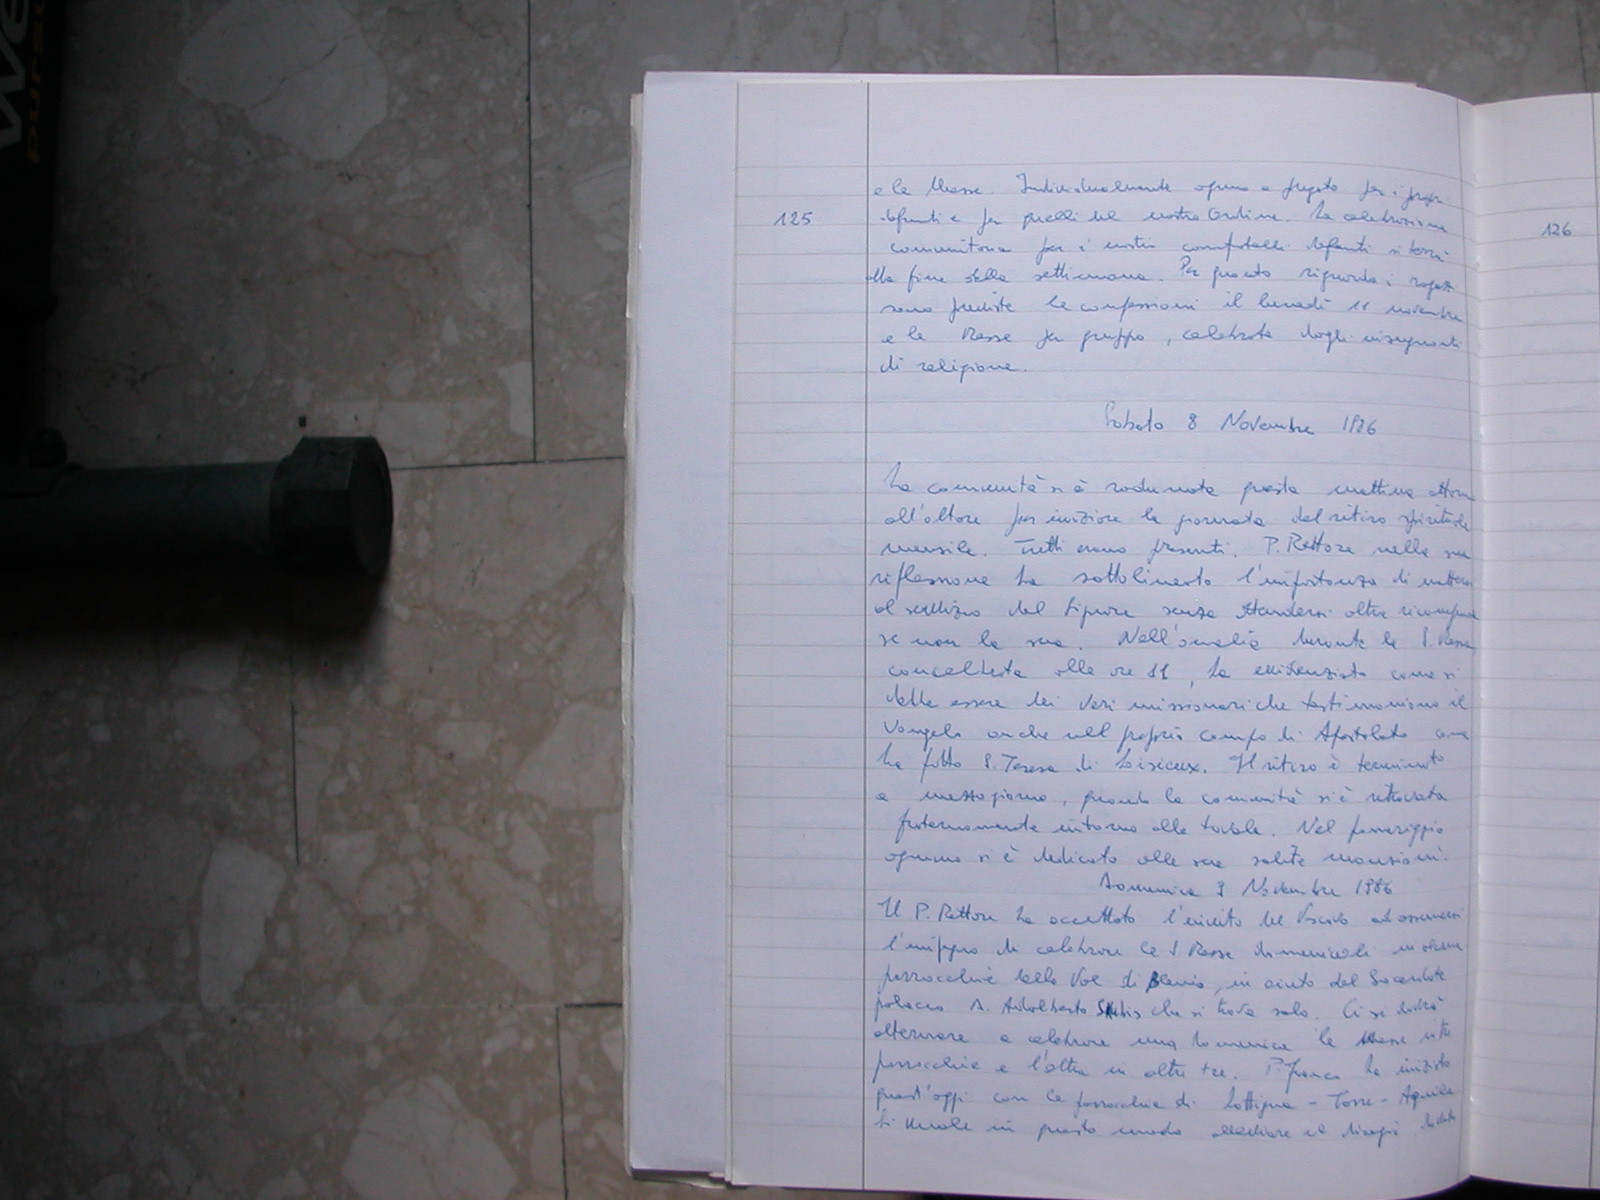 125
e le Messe. Individualmente ognuno a pregato per i propri
defunti e per quelli del nostro Ordine. La celebrazione
comunitaria per i nostri confratelli defunti si terrà
alla fine della settimana. Per quanto riguarda i ragazzi
sono previste le confessioni il lunedì 11 novembre
e le Messe per gruppo, celebrate dagli insegnanti
di religione.
Sabato 8 Novembre 1986
La comunità si è radunata questa mattina attorno
all'altare per iniziare la giornata del ritiro spirituale
mensile. Tutti erano presenti. P. Rettore nella sua
riflessione ha sottolineato l'importanza di mettersi
al servizio del Signore senza attendersi altra ricompensa
se non la sua. Nell'omelia durante la S. Messa
concelebrata alle ore 11, ha evidenziato come si
debba essere dei veri missionari che testimoniano il
Vangelo anche nel proprio campo di Apostolato come
ha fatto S. Teresa di Lisieux. Il ritiro è terminato
a mezzogiorno, quando la comunità si è ritrovata
fraternamente intorno alla tavola. Nel pomeriggio
ognuno si è dedicato alle sue solite mansioni.
Domenica 9 Novembre 1986
Il P. Rettore ha accettato l'invito del Vescovo ad assumersi
l'impegno di celebrare le S. Messe domenicali in alcune
parrocchie della Val di Blenio, in aiuto del Sacerdote
polacco D. Adalberto che si trova solo. Ci si dovrà
alternare a celebrare una domenica le Messe in tre
parrocchie e l'altra in altre tre. P. Franco ha iniziato
quest'oggi con le parrocchie di Lottigna - Torre - Aquila
Si vuole in questo modo alleviare il disagio
126